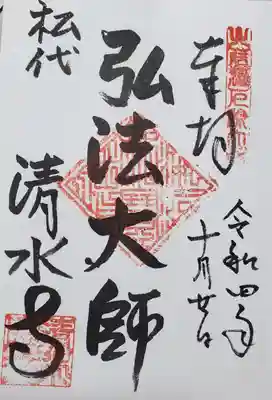 奉拝
令和四年
十月廿日
弘法大師
松代
清水寺